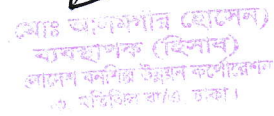 মোঃ আলমগীর হোসেন)
ব্যবস্থাপক (হিসাব)
বনশিল্প উন্নয়ন কর্পোরেশন
মতিঝিল বা/এ ঢাকা।